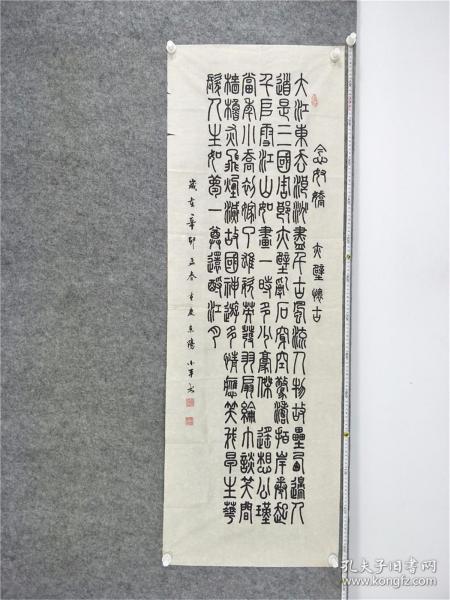 念奴嬌 赤壁懷古
大江東去浪淘盡千古風流人物故壘西邊人
道是三國周郎赤壁亂石穿空驚濤拍岸捲起
千堆雪江山如畫一時多少豪傑遙想公瑾
當年小喬初嫁了雄姿英發羽扇綸巾談笑間
檣櫓灰飛煙滅故國神遊多情應笑我早生華
髮人生如夢一尊還酹江月
歲在辛卯孟春重慶小軍書
孔夫子旧书网
www.kongfz.com